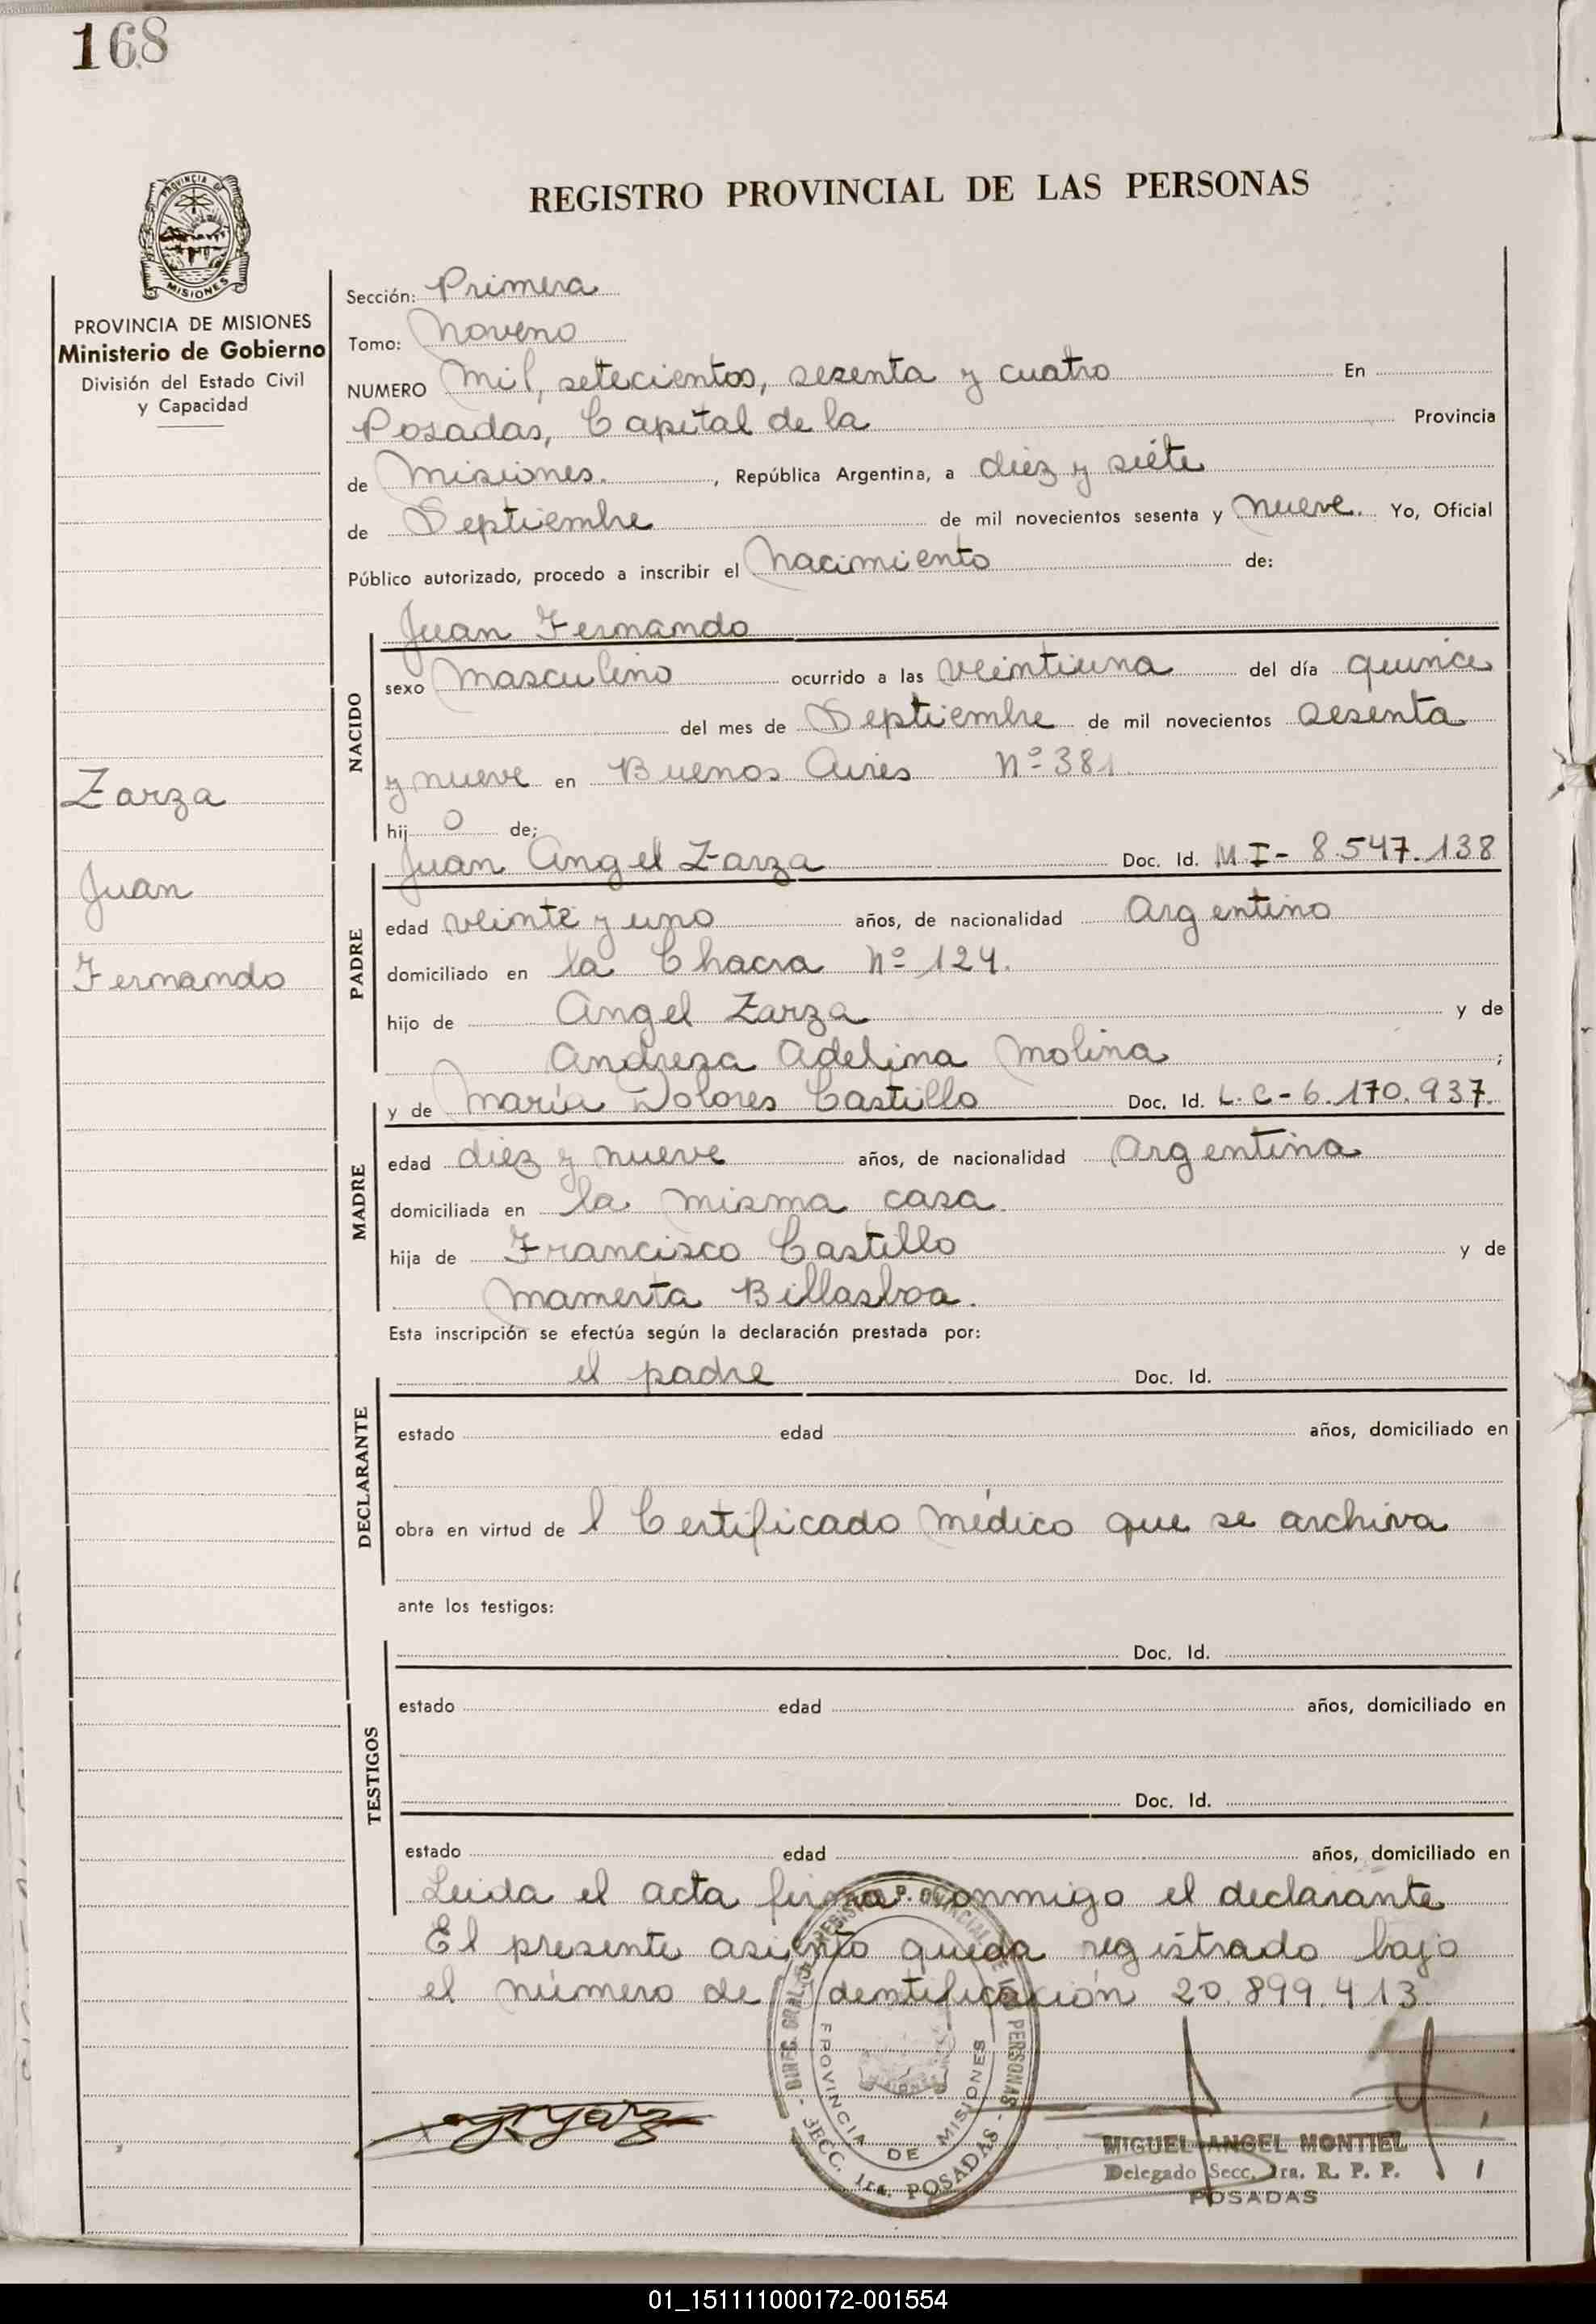 168
PROVINCIA DE
MISIONES
PROVINCIA DE MISIONES
Ministerio de Gobierno
División del Estado Civil
y Capacidad
Zarza
Juan
Fernando
REGISTRO PROVINCIAL DE LAS PERSONAS
Sección: Primera
Tomo: Noveno
NUMERO Mil, setecientos, sesenta y cuatro En
Posadas, Capital de la Provincia
de Misiones. , República Argentina, a diez y siete
de Septiembre de mil novecientos sesenta y nueve. Yo, Oficial
Público autorizado, procedo a inscribir el Nacimiento de:
NACIDO
Juan Fernando
sexo Masculino ocurrido a las veintiuna del día quince
del mes de Septiembre de mil novecientos sesenta
y nueve en Buenos Aires Nº 381
hij o de;
PADRE
Juan Angel Zarza Doc. Id. M I - 8.547.138
edad veinte y uno años, de nacionalidad Argentino
domiciliado en la Chacra Nº 124.
hijo de Angel Zarza y de
Andresa Adelina Molina ;
MADRE
y de María Dolores Castillo Doc. Id. L.C - 6.170.937.
edad diez y nueve años, de nacionalidad Argentina
domiciliada en la misma casa
hija de Francisco Castillo y de
Mamerta Billasboa.
Esta inscripción se efectúa según la declaración prestada por:
DECLARANTE
el padre Doc. Id.
estado edad años, domiciliado en
obra en virtud de l Certificado médico que se archiva
ante los testigos:
TESTIGOS
Doc. Id.
estado edad años, domiciliado en
Doc. Id.
estado edad años, domiciliado en
Leida el acta firma conmigo el declarante
El presente asiento queda registrado bajo
el número de identificación 20.899.413
PROVINCIA DE MISIONES
SECC. 1ra. POSADAS
MIGUEL ANGEL MONTIEL
Delegado Secc. 1ra. R. P. P.
POSADAS
01_151111000172-001554